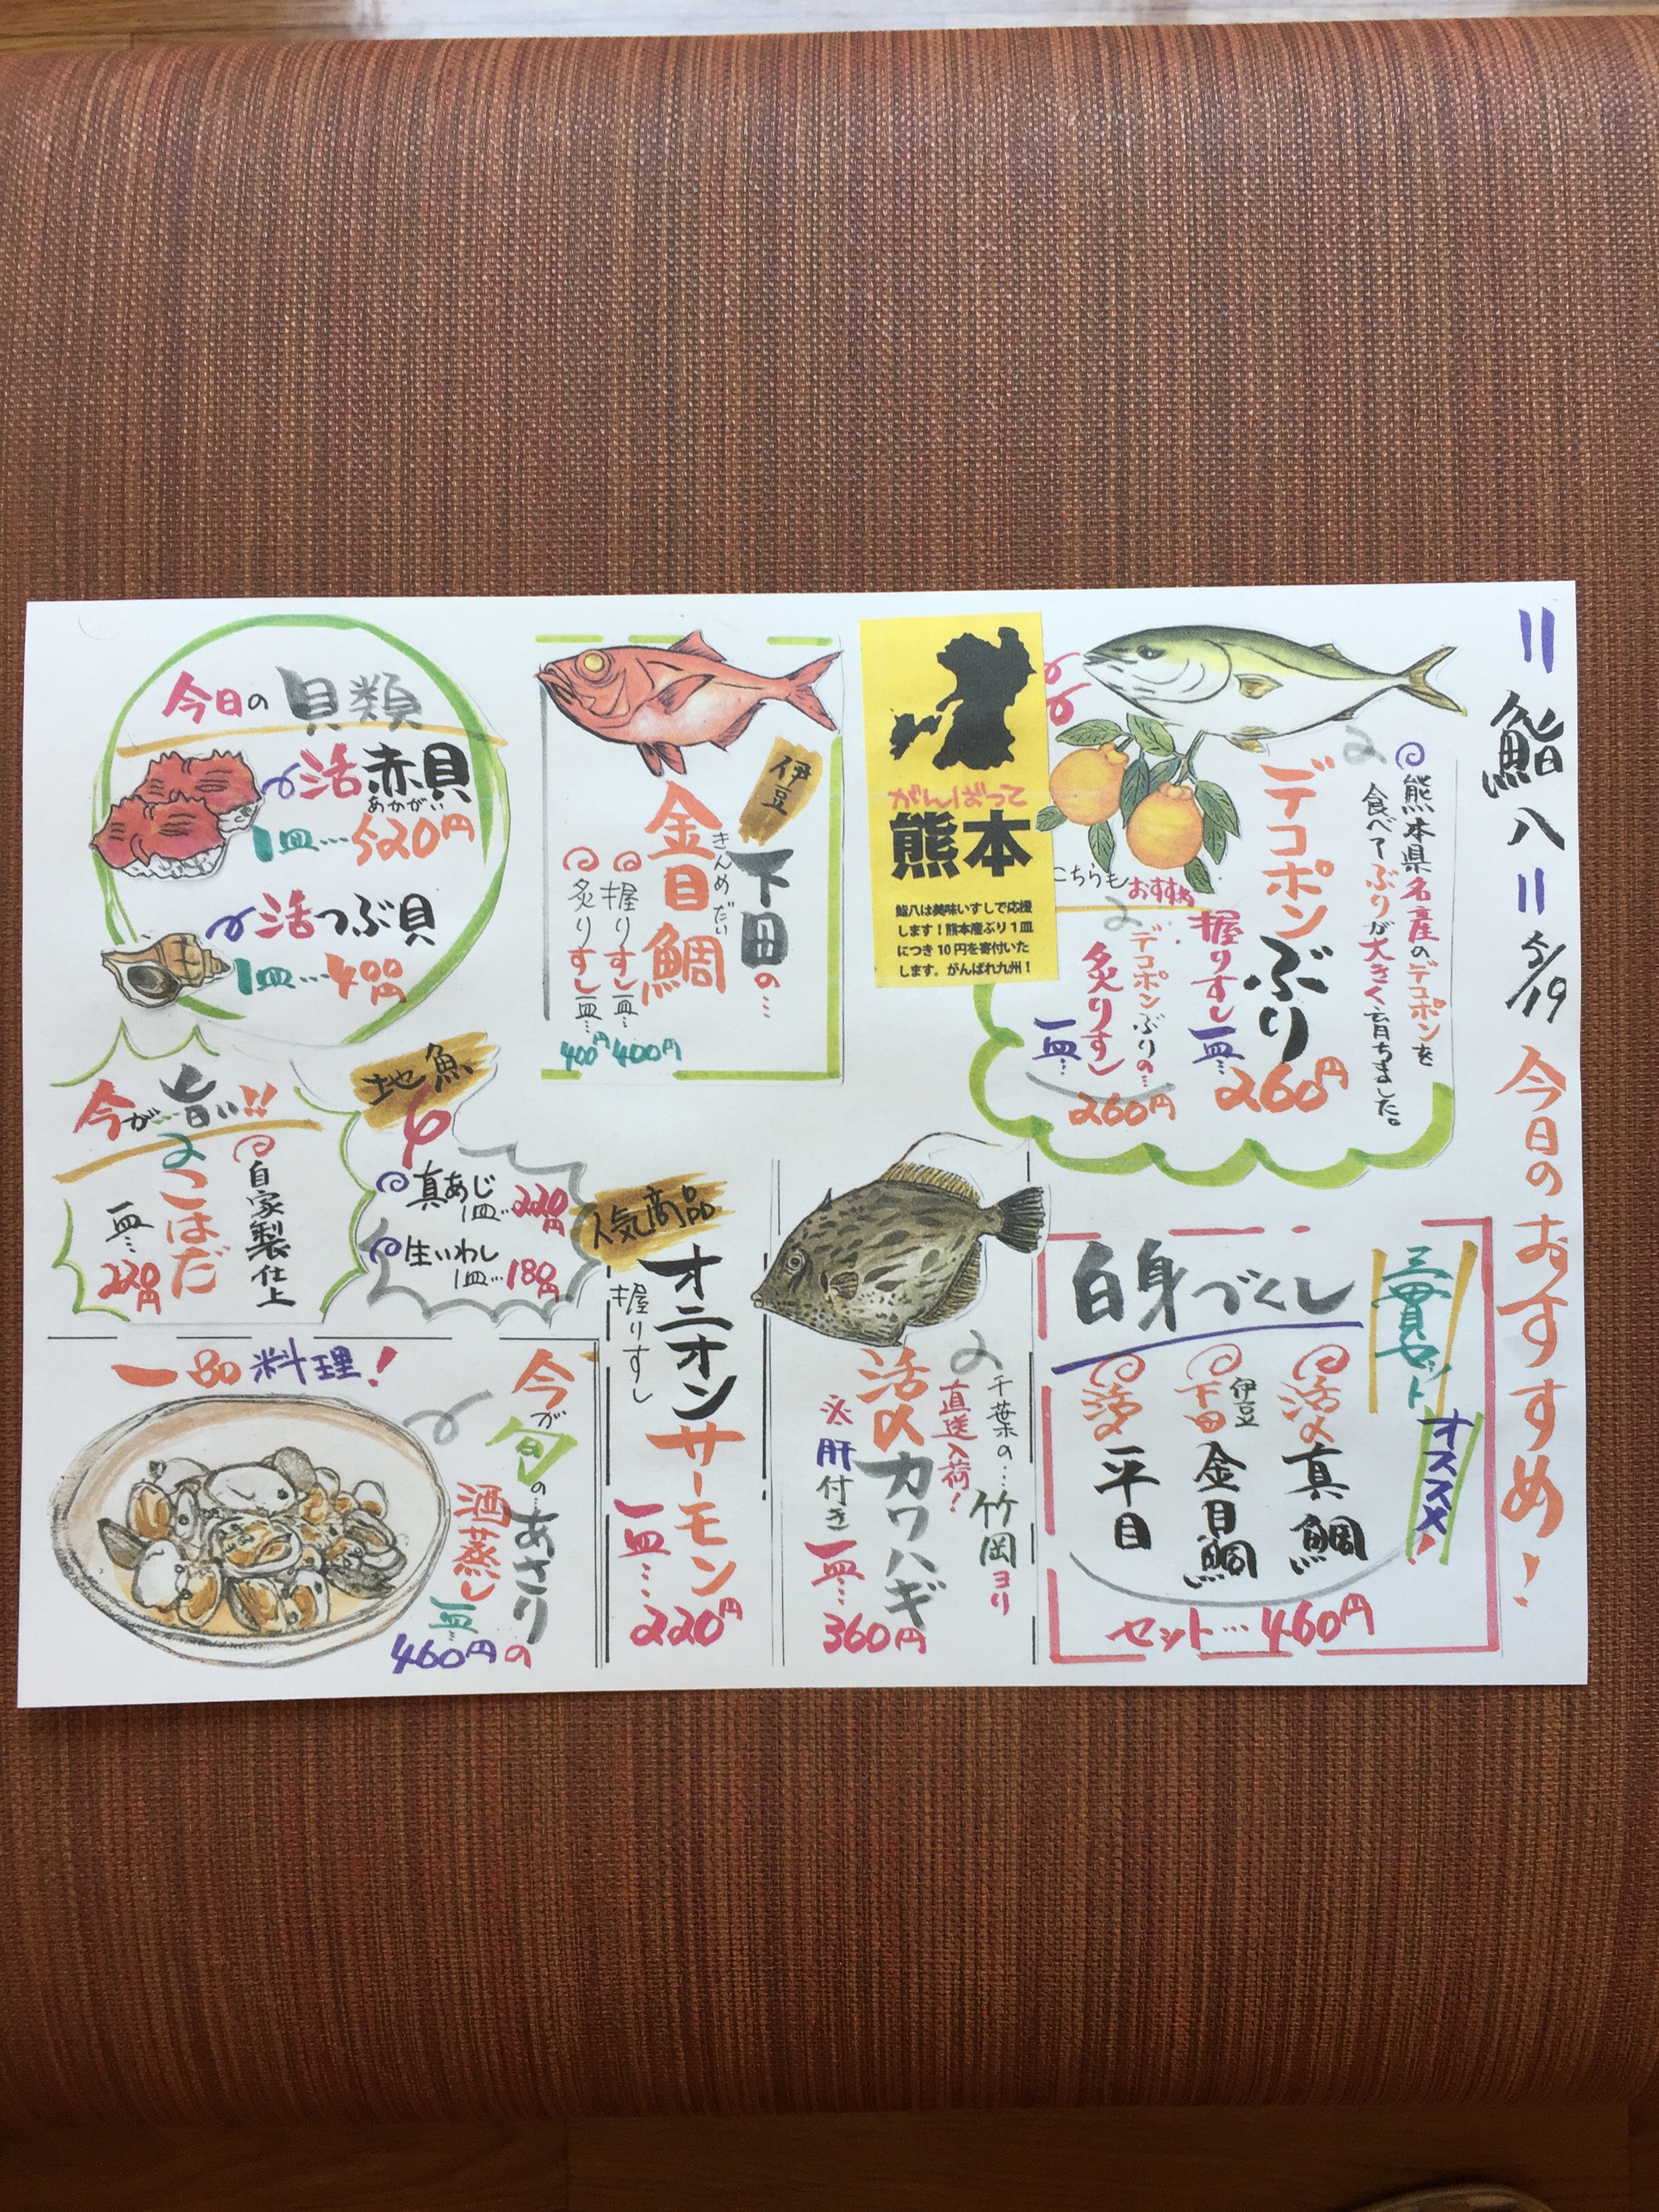 ＝鮨八＝ 5/19 今日のおすすめ！
熊本県名産のデコポンを
食べてぶりが大きく育ちました。
デコポンぶり
握りすし
一皿… 260円
こちらもおすすめ
デコポンぶりの…
炙りすし
一皿… 260円
がんばって
熊本
鮨八は美味いすしで応援
します！熊本産ぶり１皿
につき10円を寄付いた
します。がんばれ九州！
伊豆
下田の…
金目鯛
きんめだい
握りすし一皿… 400円
炙りすし一皿… 400円
今日の貝類
活赤貝
あかがい
1皿…520円
活つぶ貝
1皿…400円
今が…旨い!!
自家製仕上
こはだ
一皿… 220円
地魚
真あじ
1皿… 220円
生いわし
1皿… 180円
三貫セット
オススメ！
白身づくし
活〆真鯛
伊豆
下田金目鯛
活〆平目
セット…460円
千葉の…竹岡ヨリ
直送入荷！
活〆カワハギ
※肝付き
一皿… 360円
人気商品
オニオンサーモン
握りすし
一皿… 220円
一品料理！
今が旬の…あさりの
酒蒸し
一皿… 460円